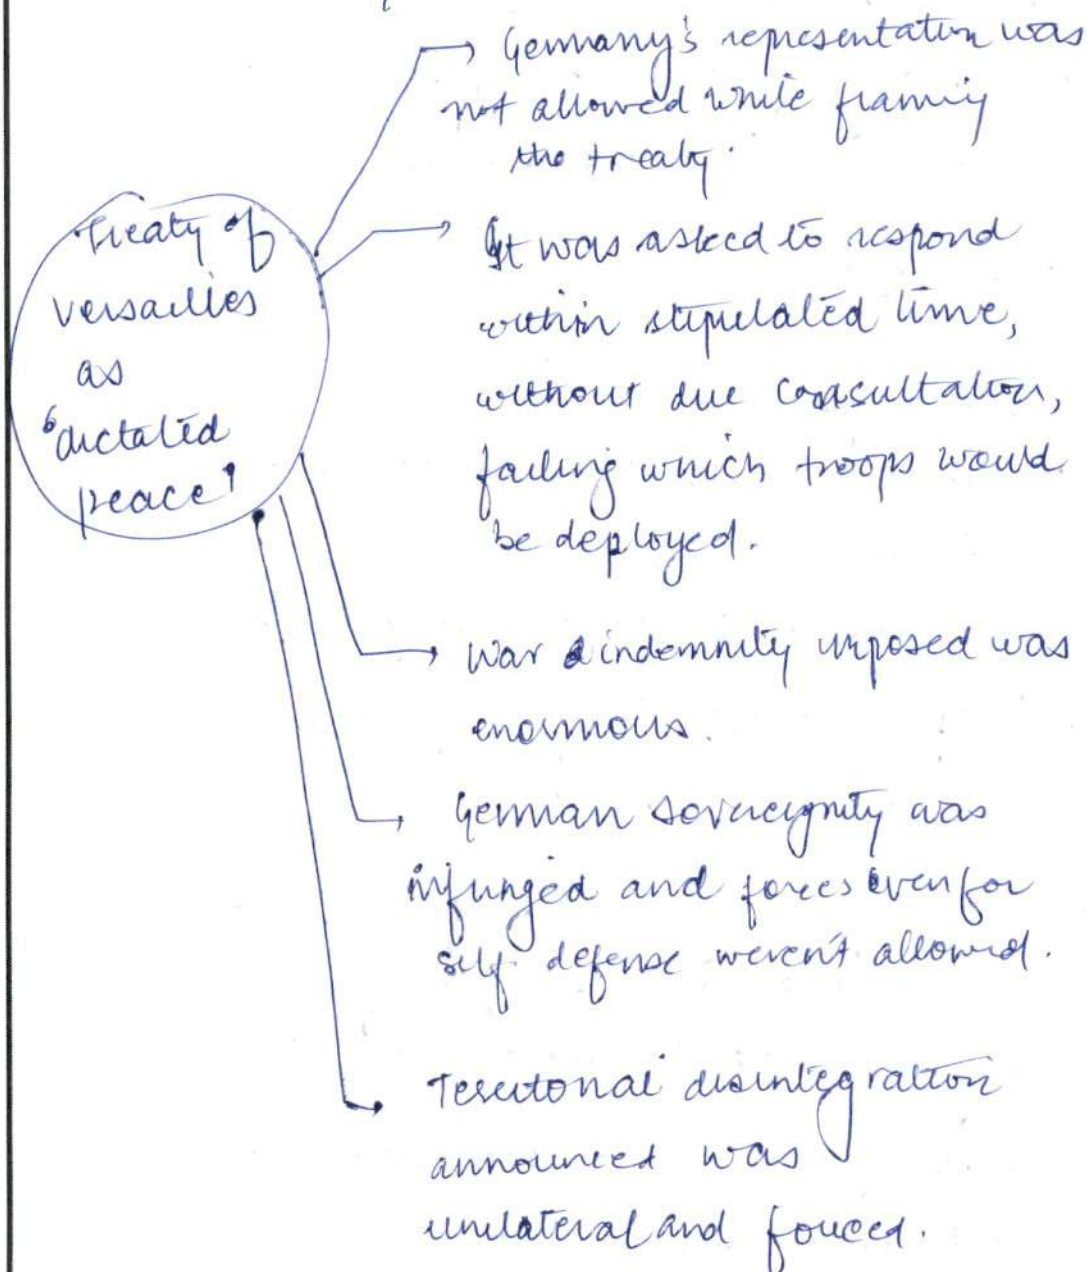 Treaty of
versailles
as
'dictated
peace'
Germany's representation was
not allowed while framing
the treaty.
It was asked to respond
within stipulated time,
without due consultation,
failing which troops would
be deployed.
War indemnity imposed was
enormous.
German sovereignity was
infringed and forces even for
self defense weren't allowed.
Territorial disintegration
announced was
unilateral and forced.